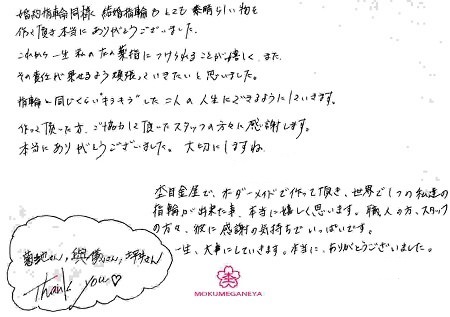 婚約指輪同様、結婚指輪もとても素晴らしい物を
作って頂き本当にありがとうございました。
これから一生私の左の薬指につけられることが嬉しく、また、
その責任が果せるよう頑張っていきたいと思いました。
指輪と同じくらい"キラキラ"した二人の人生にできるようにしていきます。
作って頂いた方、ご協力して頂いたスタッフの方々に感謝します。
本当にありがとうございました。大切にしますね
杢目金屋で、オーダーメイドで作って頂き、世界で1つの私達の
指輪が出来た事、本当に嬉しく思います。職人の方、スタッフ
の方々、皆に感謝の気持ちでいっぱいです。
一生、大事にしていきます。本当に、ありがとうございました。
菊地さん,與儀さん,坪井さん
Thank you♡
MOKUMEGANEYA